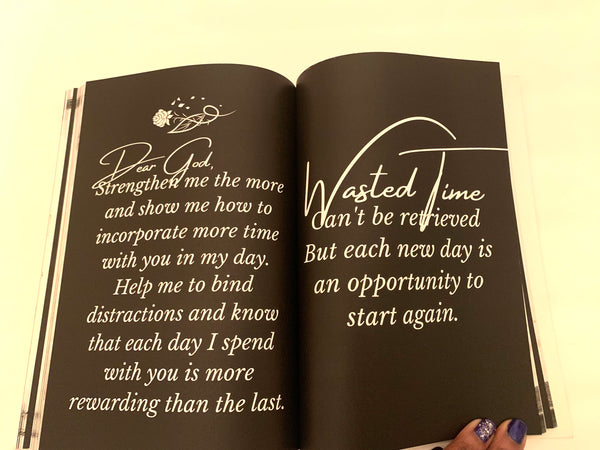 Dear God,
Strengthen me the more
and show me how to
incorporate more time
with you in my day.
Help me to bind
distractions and know
that each day I spend
with you is more
rewarding than the last.
Wasted Time
Can't be retrieved
But each new day is
an opportunity to
start again.